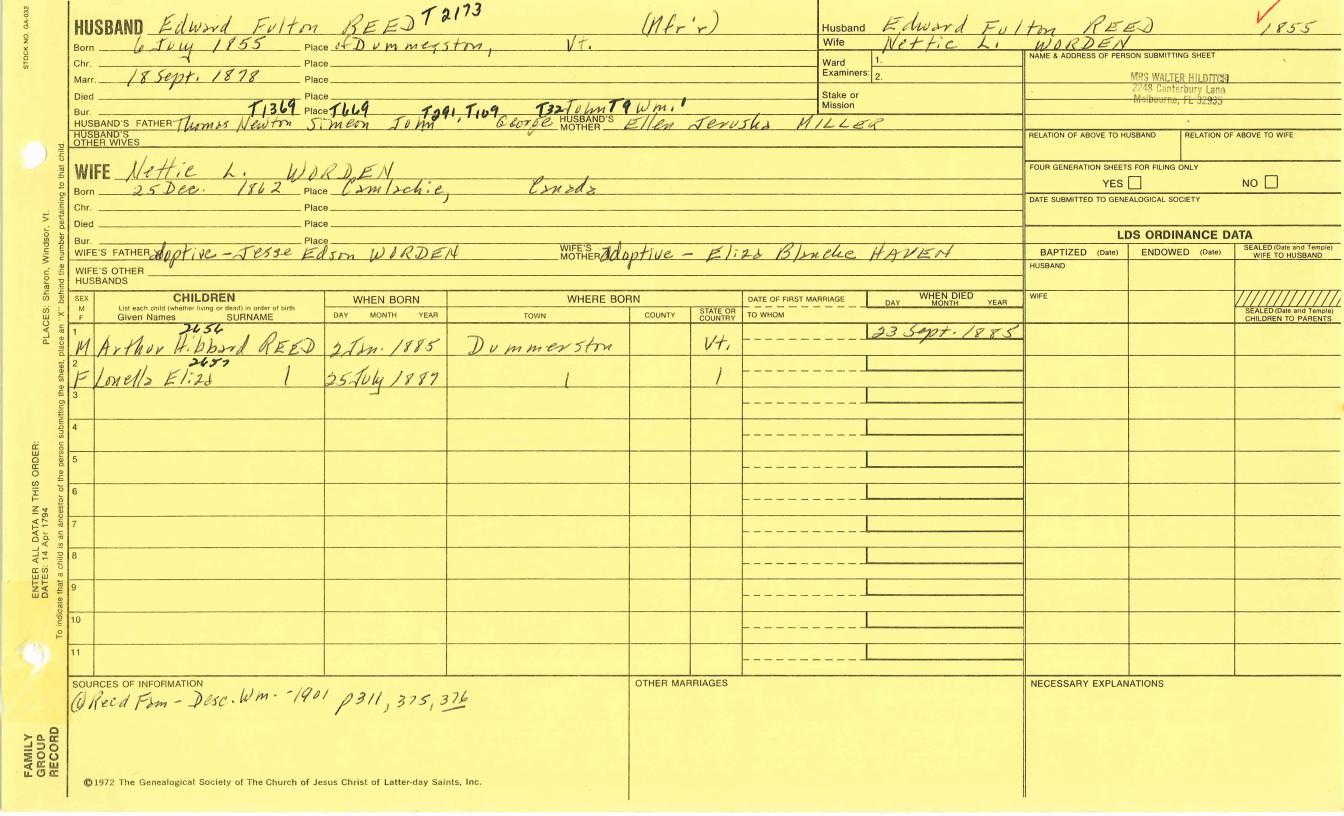 STOCK NO. GA-032
HUSBAND Edward Fulton REED T2173 (Mfr'r)
Born 6 July 1855 Place of Dummerston, Vt.
Chr. Place
Marr. 18 Sept. 1878 Place
Died Place
Bur. Place
T1369 T669 T291, T109 T32 John T9 Wm.1
HUSBAND'S FATHER Thomas Newton Simeon John George HUSBAND'S MOTHER Ellen Jerusha MILLER
HUSBAND'S OTHER WIVES
WIFE Nettie L. WORDEN
Born 25 Dec. 1862 Place Camlachie, Canada
Chr. Place
Died Place
Bur. Place
WIFE'S FATHER Adoptive - Jesse Edson WORDEN WIFE'S MOTHER Adoptive - Eliza Blanche HAVEN
WIFE'S OTHER HUSBANDS
Husband Edward Fulton REED 1855
Wife Nettie L. WORDEN
Ward Examiners: 1.
2.
Stake or Mission
NAME & ADDRESS OF PERSON SUBMITTING SHEET
MRS WALTER HILDITCH
2248 Canterbury Lane
Melbourne, FL 32935
RELATION OF ABOVE TO HUSBAND RELATION OF ABOVE TO WIFE
FOUR GENERATION SHEETS FOR FILING ONLY
YES NO
DATE SUBMITTED TO GENEALOGICAL SOCIETY
LDS ORDINANCE DATA
BAPTIZED (Date) ENDOWED (Date) SEALED (Date and Temple) WIFE TO HUSBAND
HUSBAND
WIFE
SEALED (Date and Temple) CHILDREN TO PARENTS
SEX M F
CHILDREN
List each child (whether living or dead) in order of birth
Given Names SURNAME
WHEN BORN
DAY MONTH YEAR
WHERE BORN
TOWN COUNTY STATE OR COUNTRY
DATE OF FIRST MARRIAGE
TO WHOM
WHEN DIED
DAY MONTH YEAR
2656
1 M Arthur Hibbard REED 2 Jan. 1885 Dummerston Vt. 23 Sept. 1885
2657
2 F Louella Eliza 25 July 1887
3
4
5
6
7
8
9
10
11
SOURCES OF INFORMATION
① Reed Fam - Desc. Wm. - 1901 p311, 375, 376
OTHER MARRIAGES
NECESSARY EXPLANATIONS
©1972 The Genealogical Society of The Church of Jesus Christ of Latter-day Saints, Inc.
FAMILY GROUP RECORD
ENTER ALL DATA IN THIS ORDER:
DATES: 14 Apr 1794
PLACES: Sharon, Windsor, Vt.
To indicate that a child is an ancestor of the person submitting the sheet, place an "X" behind the number pertaining to that child.